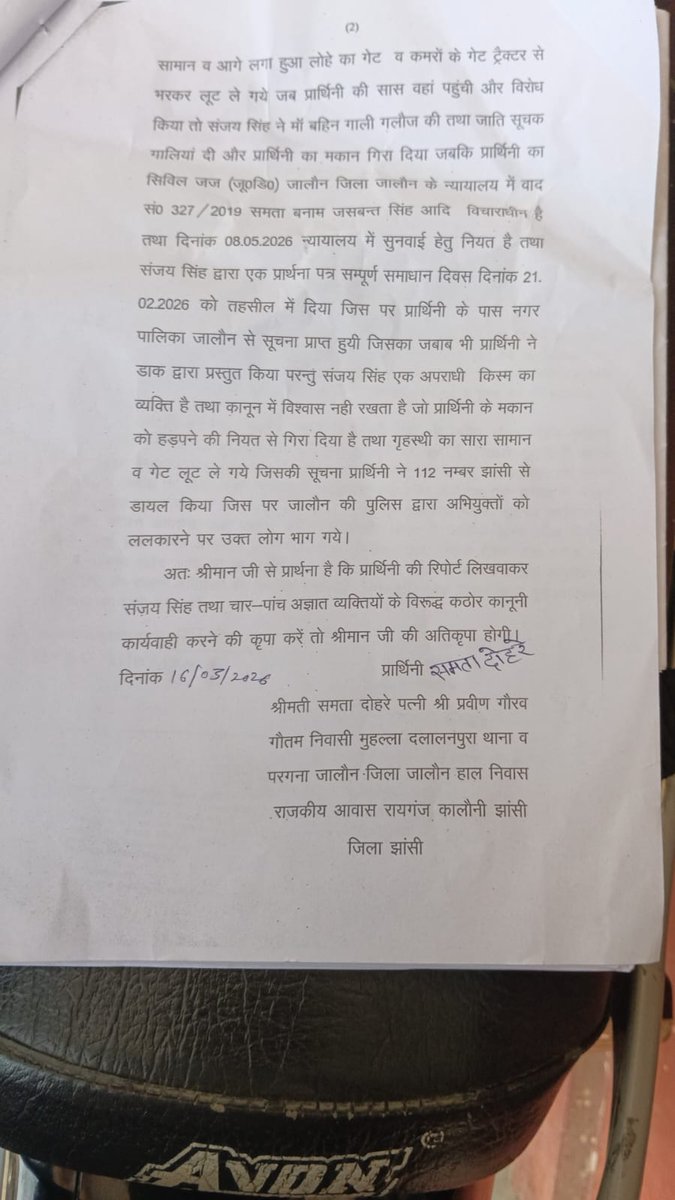 (2)
सामान व आगे लगा हुआ लोहे का गेट व कमरों के गेट ट्रैक्टर से
भरकर लूट ले गये जब प्रार्थिनी की सास वहां पहुंची और विरोध
किया तो संजय सिंह ने माॅ बहिन गाली गलौज की तथा जाति सूचक
गालियां दी और प्रार्थिनी का मकान गिरा दिया जबकि प्रार्थिनी का
सिविल जज (जू०डि०) जालौन जिला जालौन के न्यायालय में वाद
सं० 327/2019 समता बनाम जसबन्त सिंह आदि विचाराधीन है
तथा दिनांक 08.05.2026 न्यायालय में सुनवाई हेतु नियत है तथा
संजय सिंह द्वारा एक प्रार्थना पत्र सम्पूर्ण समाधान दिवस दिनांक 21.
02.2026 को तहसील में दिया जिस पर प्रार्थिनी के पास नगर
पालिका जालौन से सूचना प्राप्त हुयी जिसका जबाब भी प्रार्थिनी ने
डाक द्वारा प्रस्तुत किया परन्तु संजय सिंह एक अपराधी किस्म का
व्यक्ति है तथा कानून में विश्वास नही रखता है जो प्रार्थिनी के मकान
को हड़पने की नियत से गिरा दिया है तथा गृहस्थी का सारा सामान
व गेट लूट ले गये जिसकी सूचना प्रार्थिनी ने 112 नम्बर झांसी से
डायल किया जिस पर जालौन की पुलिस द्वारा अभियुक्तों को
ललकारने पर उक्त लोग भाग गये।
अतः श्रीमान जी से प्रार्थना है कि प्रार्थिनी की रिपोर्ट लिखवाकर
संजय सिंह तथा चार–पांच अज्ञात व्यक्तियों के विरूद्ध कठोर कानूनी
कार्यवाही करने की कृपा करें तो श्रीमान जी की अतिकृपा होगी।
दिनांक 16/03/2026 प्रार्थिनी समता दोहरे
श्रीमती समता दोहरे पत्नी श्री प्रवीण गौरव
गौतम निवासी मुहल्ला दलालनपुरा थाना व
परगना जालौन जिला जालौन हाल निवास
राजकीय आवास रायगंज कालौनी झांसी
जिला झांसी
AVON